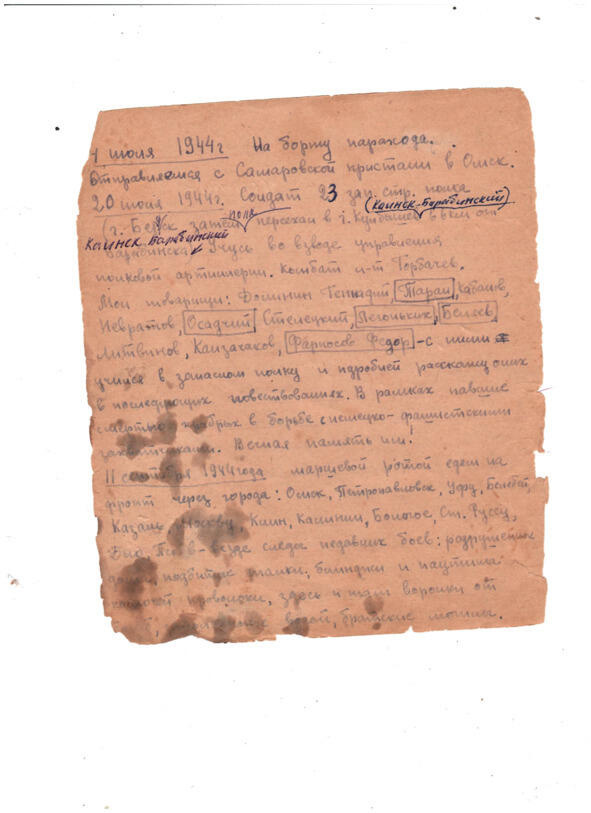 1 июня 1944г На борту парахода.
Отправляемся с Самаровской пристани в Омск.
20 июня 1944г. Солдат 23 зап. стр. полка
(Каинск-Барабинский)
(г. Бердск затем полк переехал в г. Куйбышев в вкм от
Каинск Барабинский
Барабинска) Учусь во взводе управления
полковой артиллерии. Комбат л-т Горбачев.
Мои товарищи: Фоминин Геннадий, Таран, Кабашов,
Невратов, Осадчий, Стелецкий, Легоньких, Беляев,
Литвинов, Канзачаков, Фарносов Федор - с ними я
учился в запасном полку и подробней расскажу о них
в последующих повествованиях. В рамках павшие
смертью храбрых в борьбе с немецко-фашистскими
захватчиками. Вечная память им.
11 сентября 1944 года маршевой ротой едем на
фронт через города: Омск, Петропавловск, Уфу, Белебей,
Казань, Москву, Клин, Калинин, Бологое, Ст. Руссу,
Псков - везде следы недавних боев: разрушенные
дома, подбитые танки, блиндажи и паутина
колючей проволоки, здесь и там воронки от
водой, братские могилы.